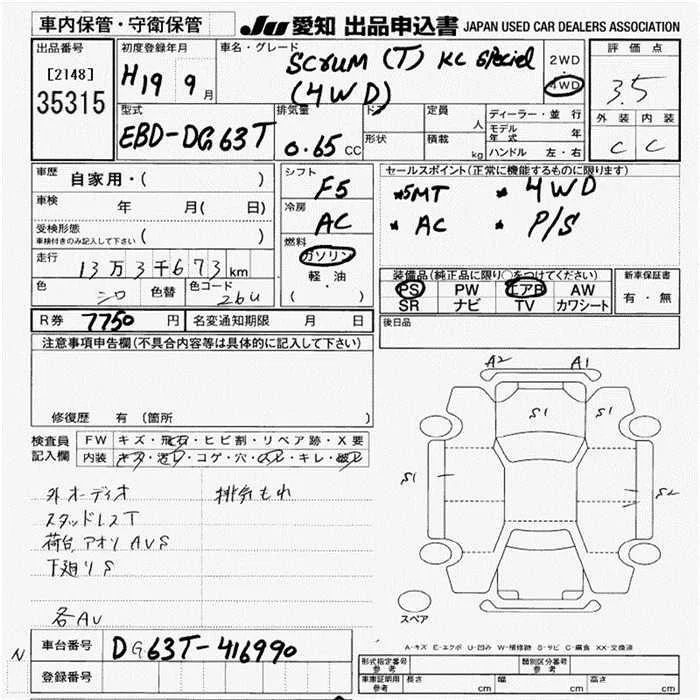 車内保管・守衛保管 JU 愛知 出品申込書 JAPAN USED CAR DEALERS ASSOCIATION
出品番号 初度登録年月 車名・グレード 2WD 評価点
[2148] H19 9月 SCrUM (T) KC Special 4WD 3.5
35315 (4WD)
型式 排気量 ドア 定員 人 ディーラー・並行 外装 内装
EBD-DG63T 0.65 CC 形状 積載 kg モデル年式 年 C C
ハンドル 左・右
車歴 自家用・( ) シフト F5 セールスポイント(正常に機能するものに限ります)
車検 年 月( 日) 冷房 AC *5MT * 4WD
受検形態 車検付きのみ記入して下さい ( ) 燃料 ガソリン * AC * P/S
走行 13万3千673km 軽油 装備品(純正品に限り○をつけてください) 新車保証書
色 シロ 色替 色コード 26U ( ・ ) PS PW エアB AW 有・無
SR ナビ TV カワシート
R券 7750円 名変通知期限 月 日 後日品
注意事項申告欄(不具合内容等は具体的に記入して下さい)
A2 A1
S1 S1
修復歴 有 (箇所
検査員 FW キズ・飛石・ヒビ割・リペア跡・X要
記入欄 内装 キズ・汚レ・コゲ・穴・のレ・キレ・破レ
S1 S2
外オーディオ 排気もれ
スタッドレスT
荷台,アオリAUS
下廻りS
各AU
スペア
N 車台番号 DG63T-416990
A-キズ E-エクボ U-凹み W-補修跡 S-サビ C-腐食 XX-交換済
登録番号 形式指定番号 参考 類別区分番号 参考
車庫証明用 参考 長さ cm 幅 cm 高さ cm